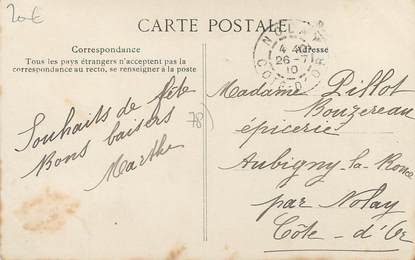 20€
CARTE POSTALE
Correspondance
Tous les pays étrangers n'acceptent pas la
correspondance au recto, se renseigner à la poste
Adresse
NOLAY
4
26-7
10
COTE-D'OR
Souhaits de fête
Bons baisers
Marthe
78)
Madame Pillot
Bouzereau
épicerie
Aubigny-la-Ronce
par Nolay
Côte-d'Or